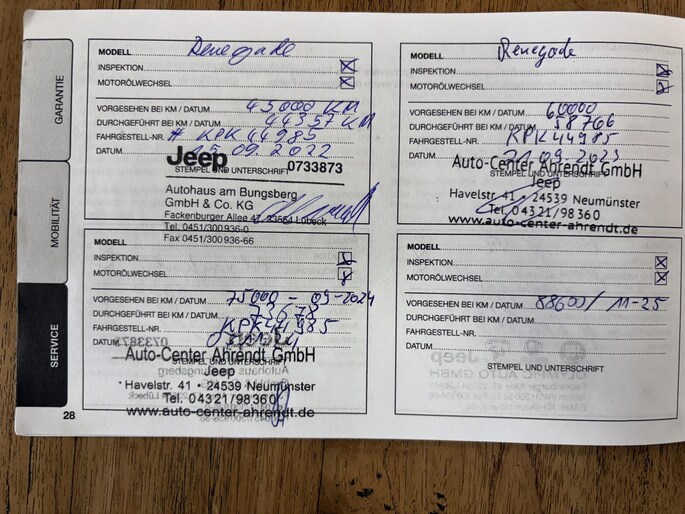 GARANTIE
MOBILITÄT
SERVICE
MODELL Renegade
INSPEKTION
MOTORÖLWECHSEL
VORGESEHEN BEI KM / DATUM 45000 KM
DURCHGEFÜHRT BEI KM / DATUM 44357 KM
FAHRGESTELL-NR. # KPK44985
DATUM 09.2022
Jeep 0733873
STEMPEL UND UNTERSCHRIFT
Autohaus am Bungsberg
GmbH & Co. KG
Fackenburger Allee 47, 23554 Lübeck
Tel. 0451/300936-0
Fax 0451/300936-66
MODELL Renegade
INSPEKTION
MOTORÖLWECHSEL
VORGESEHEN BEI KM / DATUM 60000
DURCHGEFÜHRT BEI KM / DATUM 58766
FAHRGESTELL-NR. KPK44985
DATUM 21.09.2023
Auto-Center Ahrendt GmbH
STEMPEL UND UNTERSCHRIFT
Jeep
Havelstr. 41 · 24539 Neumünster
Tel. 04321/98360
www.auto-center-ahrendt.de
MODELL
INSPEKTION
MOTORÖLWECHSEL
VORGESEHEN BEI KM / DATUM 75000 - 09-2024
DURCHGEFÜHRT BEI KM / DATUM 73678
FAHRGESTELL-NR. KPK44985
DATUM
Auto-Center Ahrendt GmbH
STEMPEL UND UNTERSCHRIFT
Jeep
Havelstr. 41 • 24539 Neumünster
Tel. 04321/98360
www.auto-center-ahrendt.de
MODELL
INSPEKTION
MOTORÖLWECHSEL
VORGESEHEN BEI KM / DATUM 88600 / 11-25
DURCHGEFÜHRT BEI KM / DATUM
FAHRGESTELL-NR.
DATUM
STEMPEL UND UNTERSCHRIFT
28